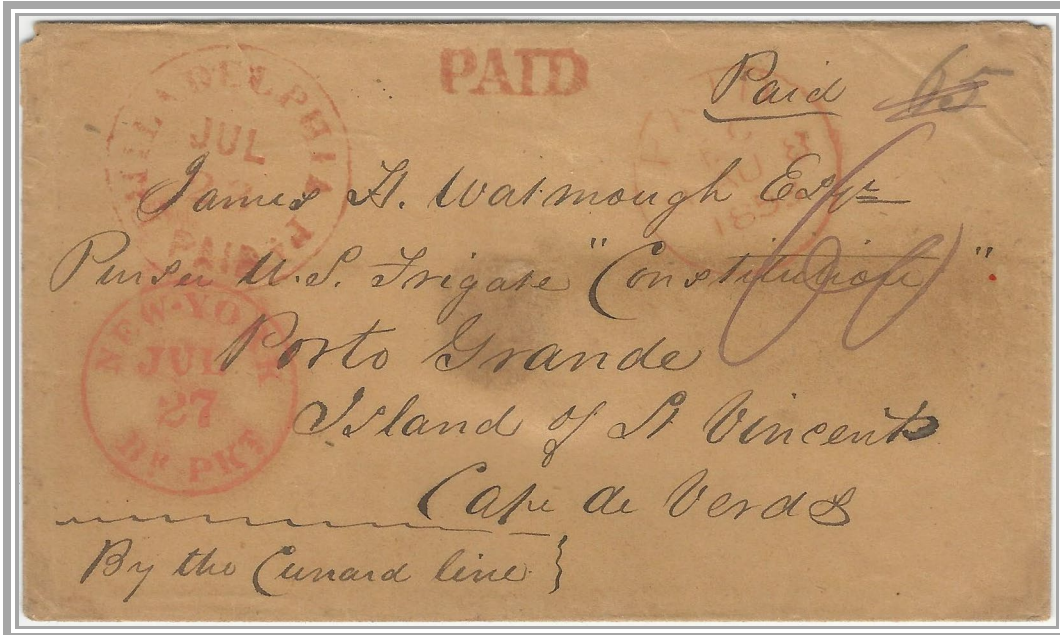 PHILADELPHIA Pa.
JUL
PAID
PAID
Paid 65
James H. Watmough Esqr
Purser U.S. Frigate "Constitution"
NEW-YORK
JUL
27
BR. PKT
Porto Grande
Island of St Vincents
Cape de Verds
By the Cunard line }